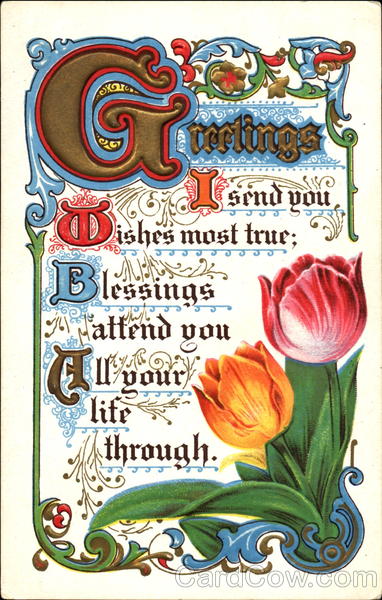 Greetings
I send you
Wishes most true;
Blessings
attend you
All your
life
through.
CardCow.com